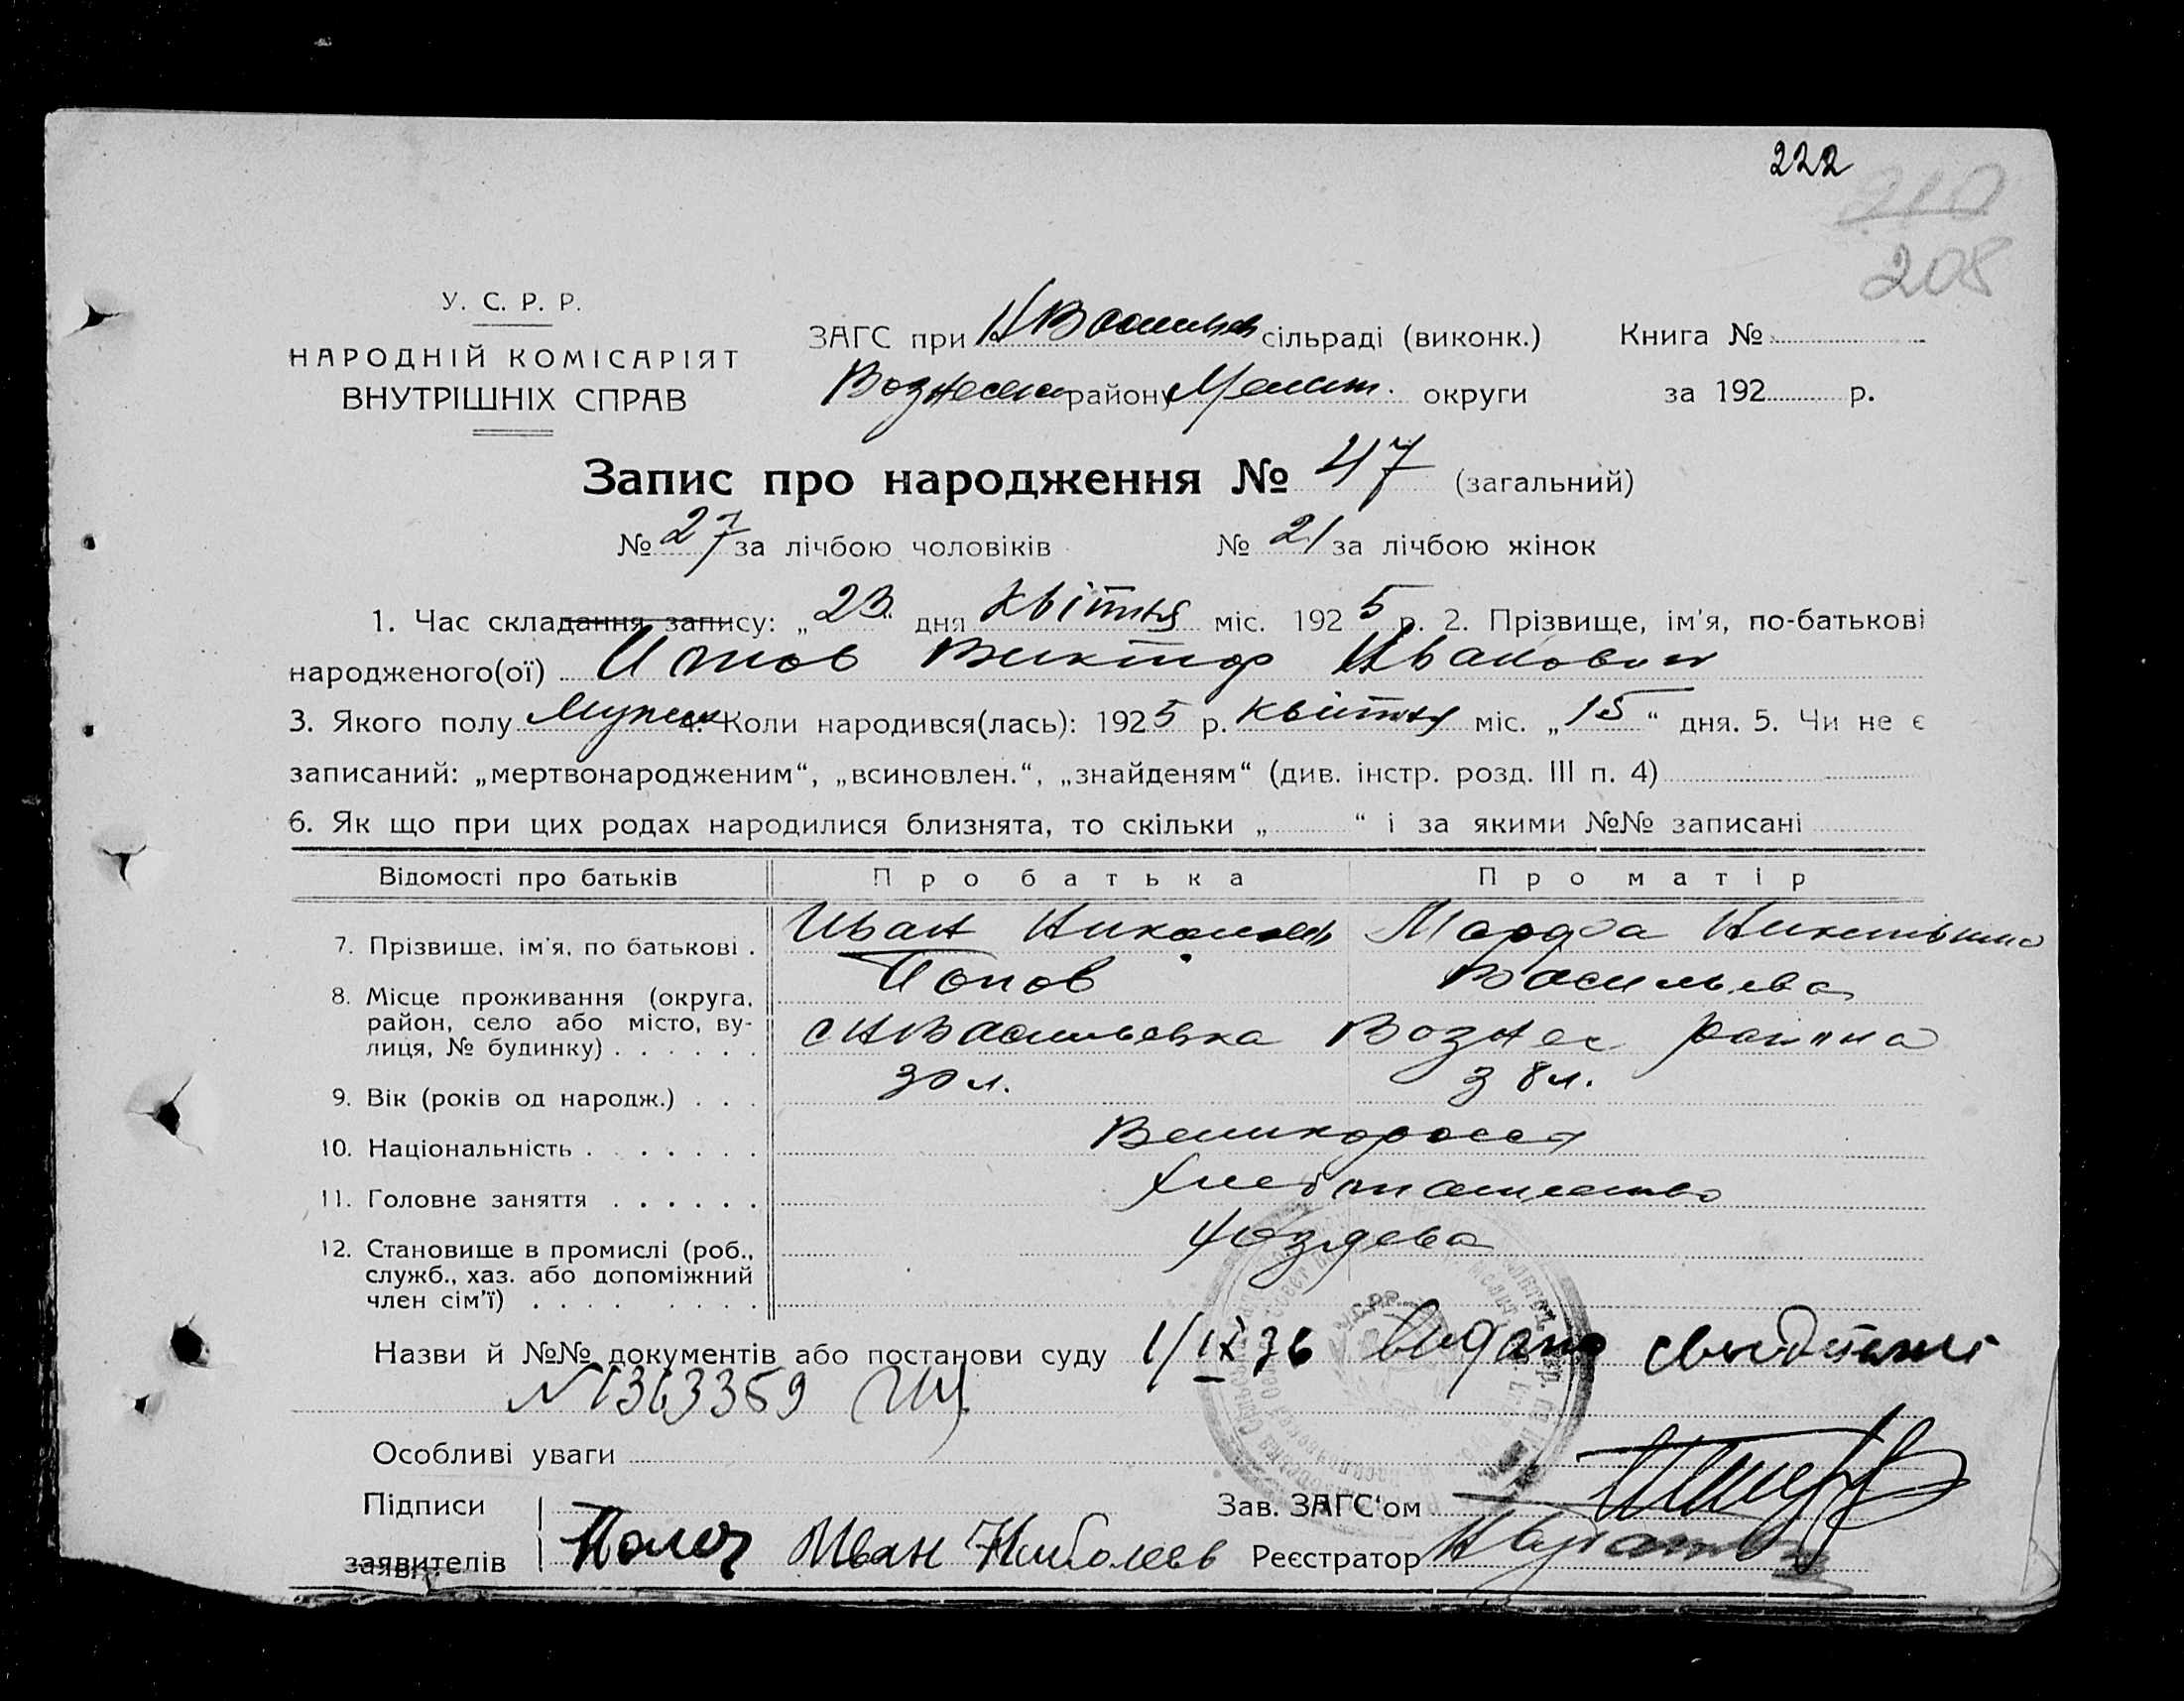 222
210
208
У. С. Р. Р.
НАРОДНІЙ КОМІСАРІЯТ
ВНУТРІШНІХ СПРАВ
ЗАГС при НВасильев сільраді (виконк.) Книга №
Вознесен району Мелит. округи за 192 р.
Запис про народження № 47 (загальний)
№ 27 за лічбою чоловіків № 21 за лічбою жінок
1. Час складання запису: „23“ дня квітня міс. 1925 р. 2. Прізвище, ім'я, по-батькові
народженого(ої) Попов Виктор Иванович
3. Якого полу Мужск 4. Коли народився(лась): 1925 р. квітня міс. „15“ дня. 5. Чи не є
записаний: „мертвонародженим“, „всиновлен.“, „знайденям“ (див. інстр. розд. III п. 4)
6. Як що при цих родах народилися близнята, то скільки „ “ і за якими №№ записані
Відомості про батьків Про батька Про матір
7. Прізвище, ім'я, по батькові . Иван Николаев Марфа Никитьевна
Попов Васильева
8. Місце проживання (округа,
район, село або місто, ву-
лиця, № будинку) . . . . . . с НВасильевка Вознес района
9. Вік (років од народж.) . . . 30 л. 38 л.
10. Національність . . . . . . . Великоросс
11. Головне заняття . . . . . . Хлебопашество
12. Становище в промислі (роб.,
служб., хаз. або допоміжний
член сім'ї) . . . . . . . .
Назви й №№ документів або постанови суду 1/IX 36 видано
N 1363359
У.С.Р.Р.
Особливі уваги
Підписи
заявителів Попов Иван Николаев
Зав. ЗАГС'ом
Реєстратор